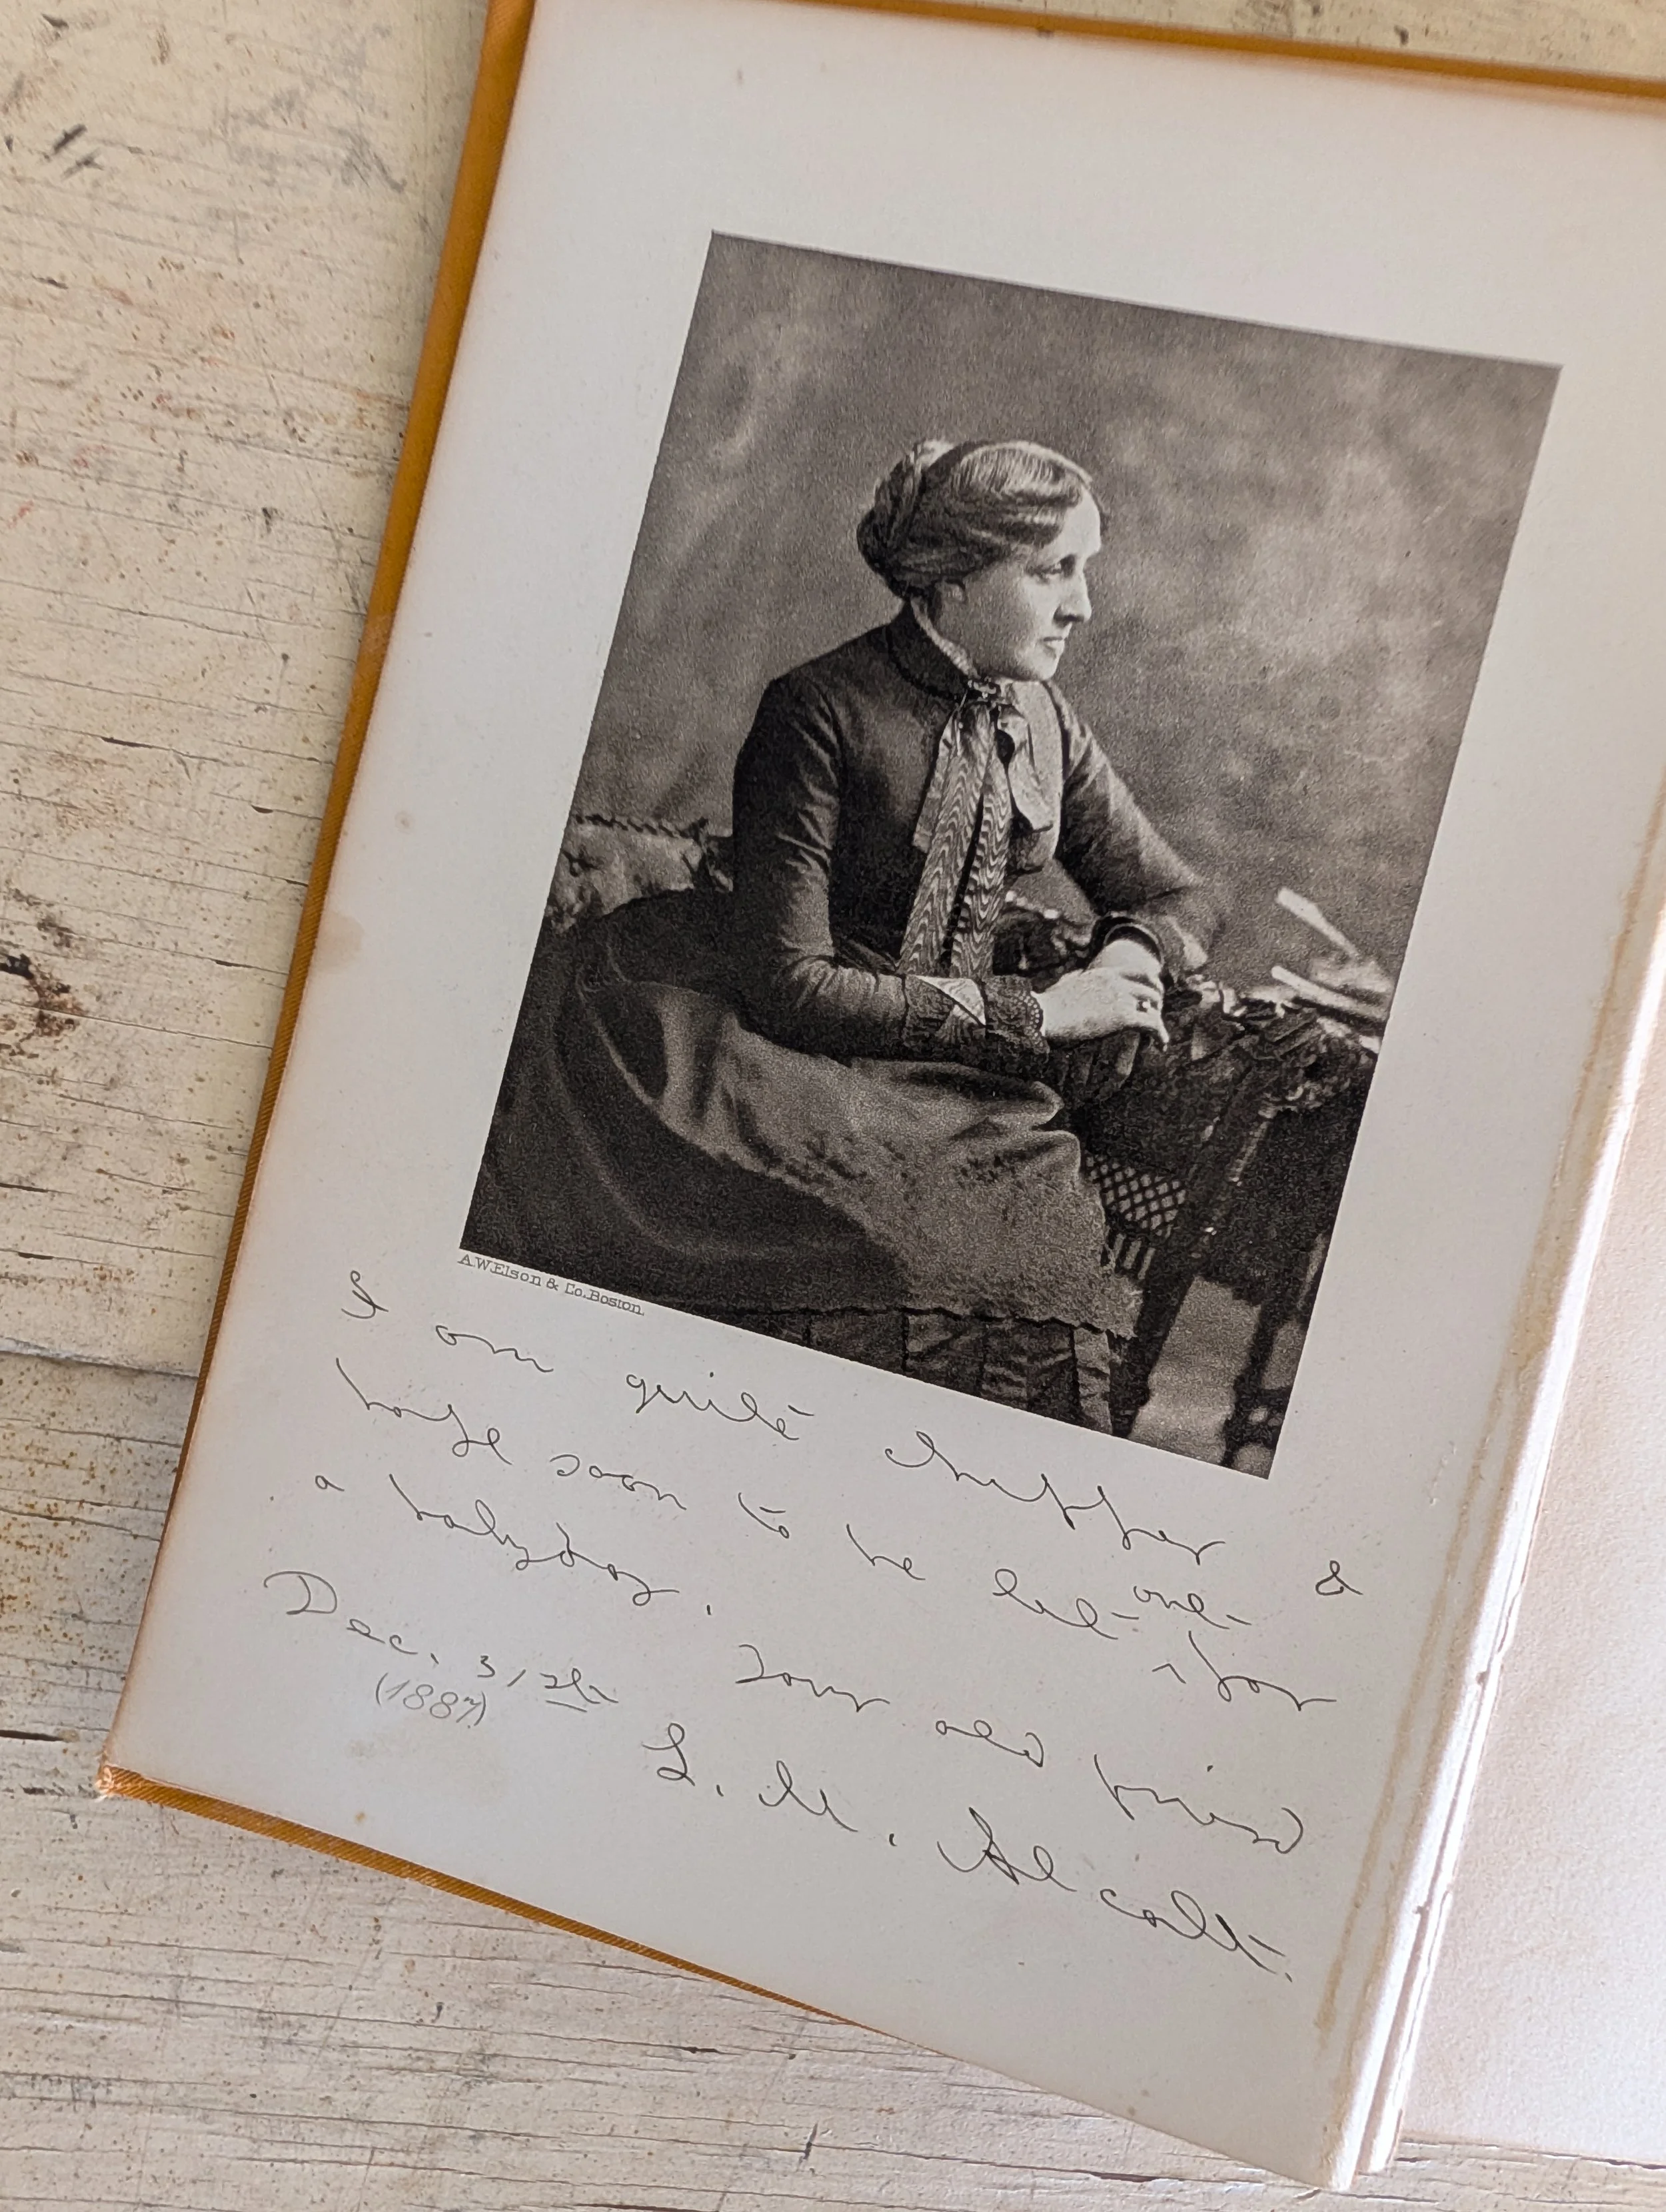 A.W.Elson & Co. Boston.
I am quite chipper &
hope soon to be let out for
a holyday. Your old friend
Dec. 31st
(1887)
L. M. Alcott.